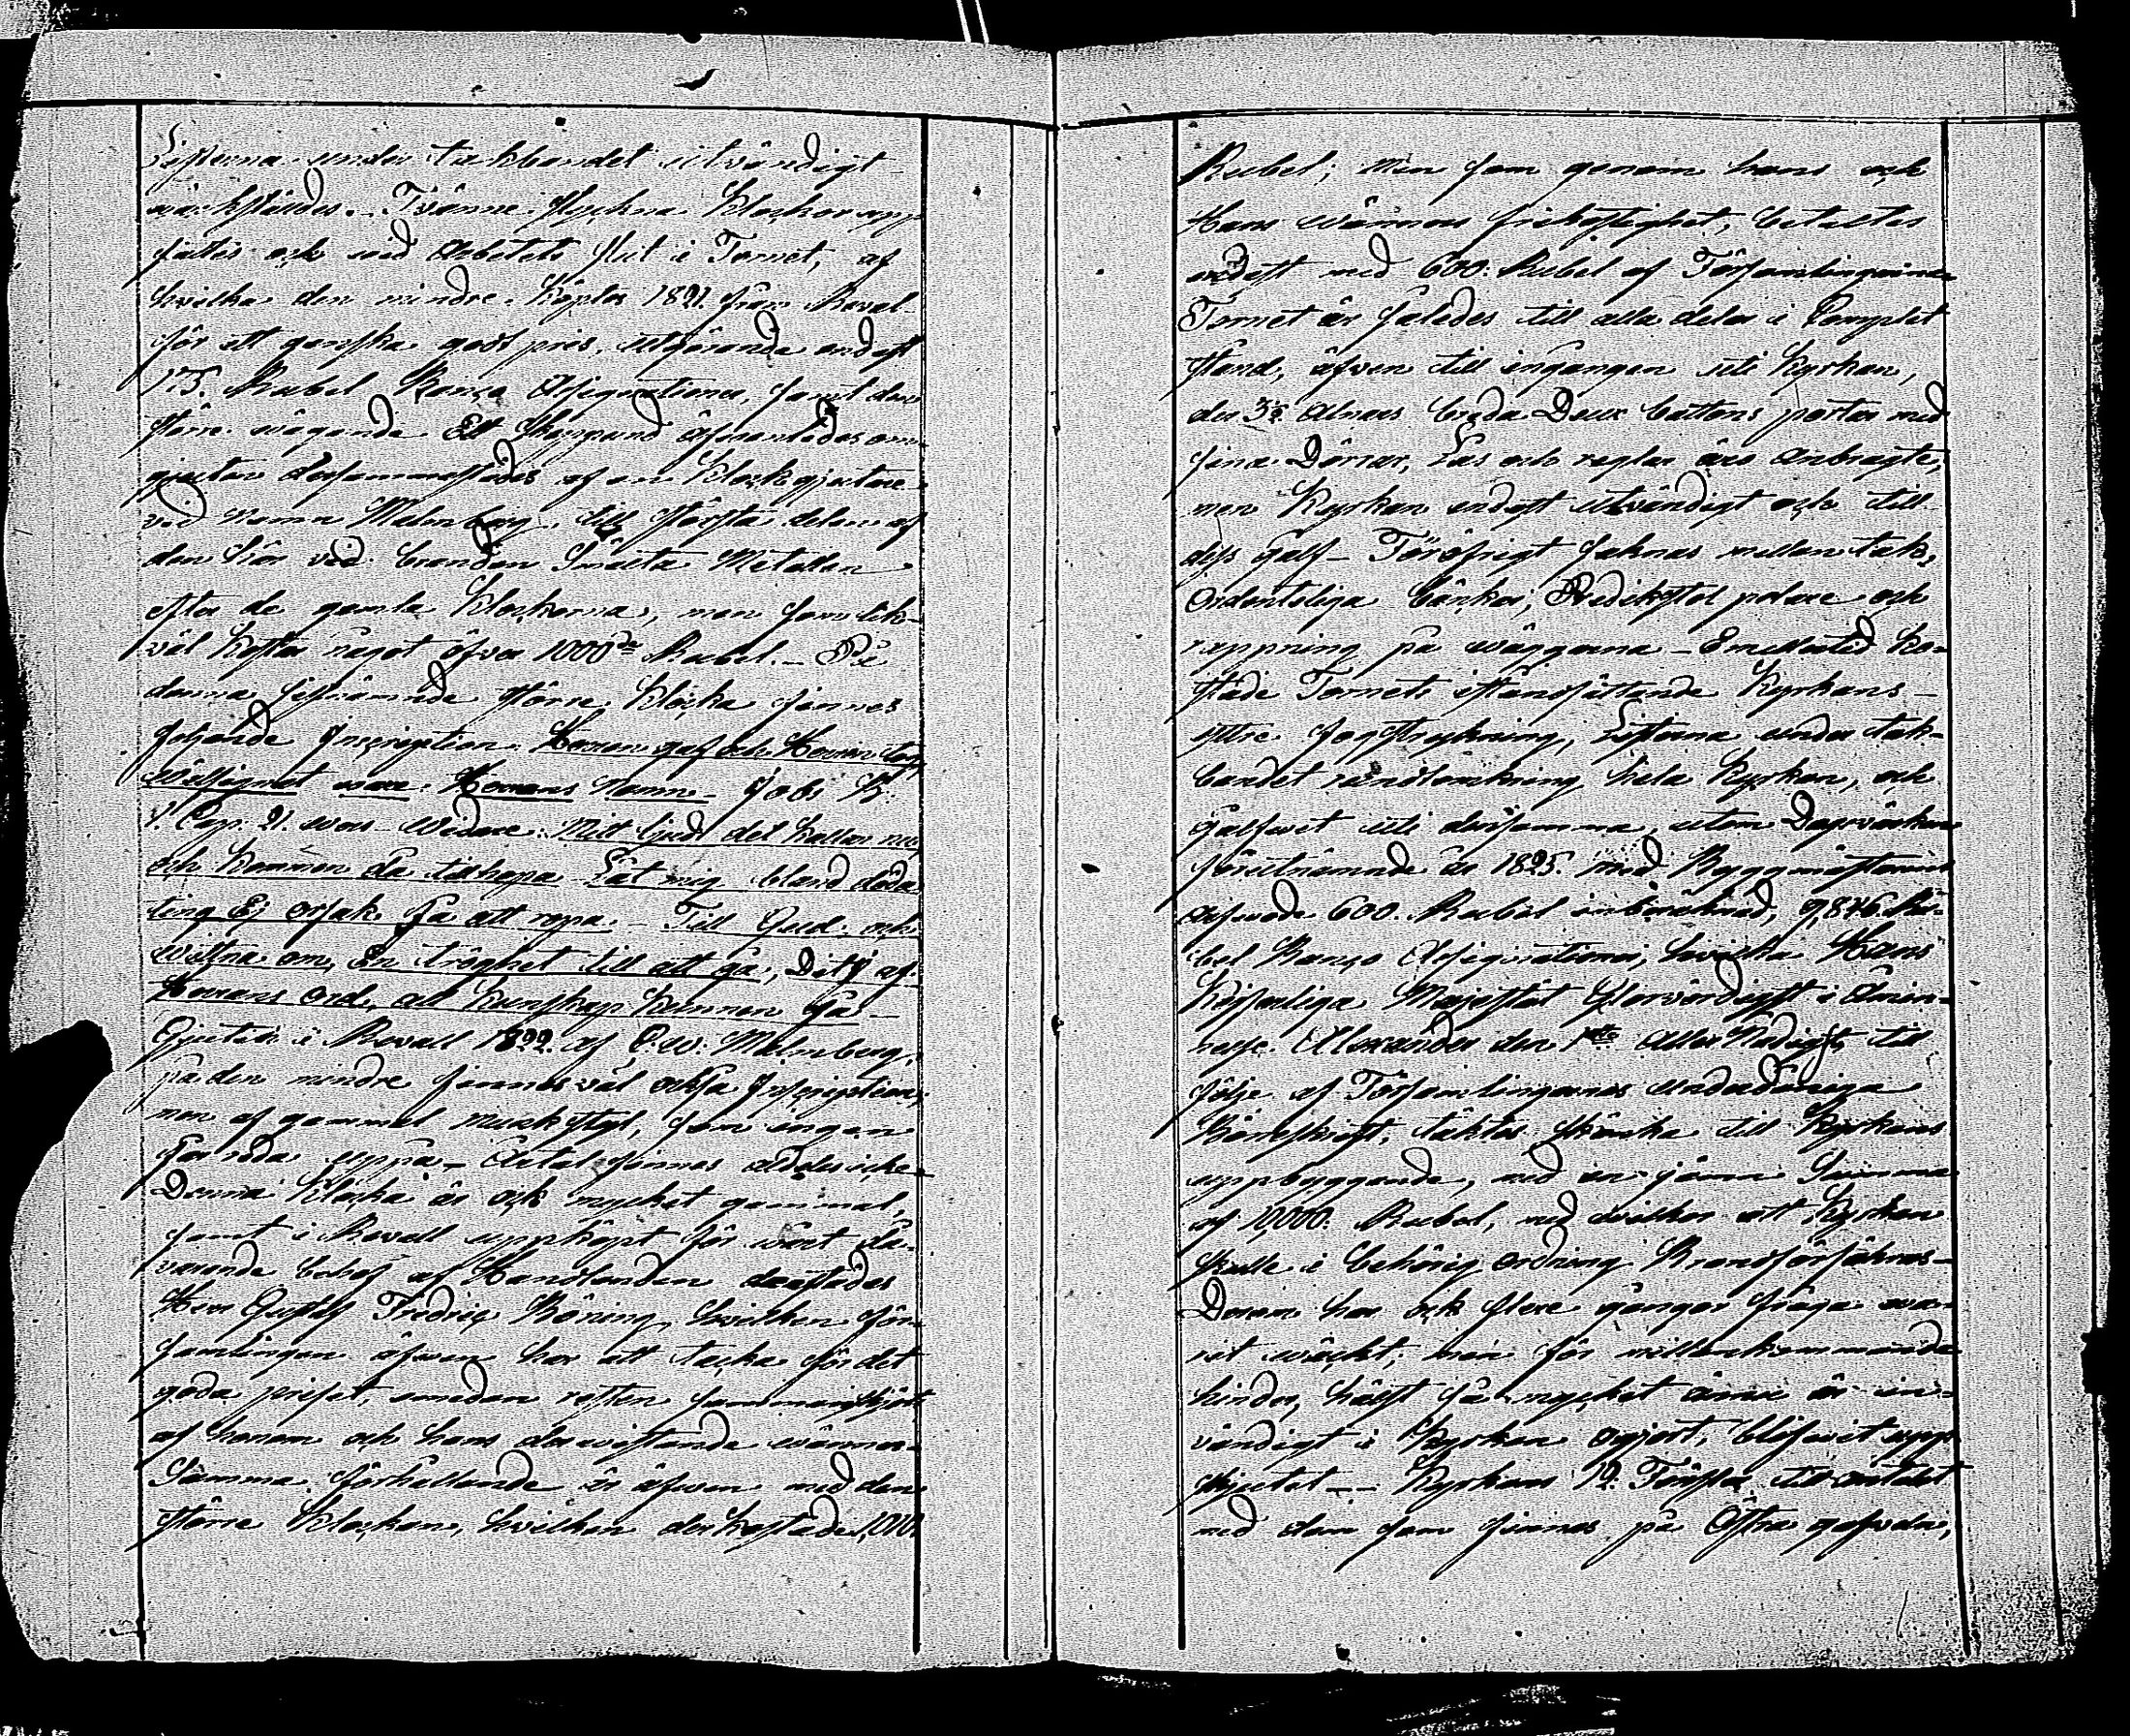 Listerna under takbandet utvändigt
värkstäldes. Tvänne stycken Klockor upp
sattes och vid Arbetets slut i Tornet, af
hvilka den mindre Köptes 1821 från Reval
för ett ganska godt pris, utgörande endast
175. Rubel Banco Assignationer, samt den
större vägande Ett Skeppund
gjuten dersammastädes af en Klockgjutare
vid namn Malmberg, till största delen af
den här vid branden Smälta Metallen
efter de gamla Klockorna, men som lik-
väl kostar något öfver 1000de Rubel. På
denna sistnämnde större Klocka finnes
följande Inscription. Herren gaf och Herren tog
välsignat vare Herrans Namn. Jobs B:
1. Cap. 21. vers vidare: Mitt ljud det kallar nu,
och kommen då tillhopa Låt mig bland döda
ting Ej orsak få att ropa. Till Gud och
vittna om, En tröghet till att gå, Dit J af
Herrans Ord, all kunskap kunnen få
Gjuten i Revall 1822. af C. W. Malmberg,
på den mindre finnes väl också Inscription,
men af gammal munkstyl, som ingen
får reda uppå. Årtal finnes aldeles icke
Denna Klocka är ock mycket gammal,
samt i Revall uppköpt för vårt då-
varande behof af Handlanden därstädes
Herr Gustaf Fredric Böning, hvilken För-
samlingen äfven har att tacka för det
goda priset, emedan resten sammanskjöts
af honom och hans dervistande vänner.
Samma förhållande är äfven med den
större Klockan, hvilken der kostade 1010
Rubel; men som genom hans och
Hans vänners frikostighet, betaltes
endast med 600. Rubel af Församlingarne
Tornet är således till alla delar i Complet
stånd, äfven till ingången uti Kyrkan,
der 3½ Alnars breda Deux battens portar med
sina Dörrar, Lås och reglar äro anbragte,
men Kyrkan endast utvändigt och till
dess golf. Föröfrigt saknas mellan tak,
Ordentliga bänkar, Predikstol pelare och
rappning på väggarna. Emellertid ko-
stade Tornets iståndsättande Kyrkans
yttre Fogstrykning, Listerna under tak-
bandet rundtomkring hela Kyrkan, och
Golfvet uti densamma, utom Dagsvärken
förutnämnde år 1825. med Byggmästarens
arfvode 600. Rubel inberäknad, 9,846 Ru-
bel Banco Assignationer, hvilka Hans
Kejserliga Majestät Glorvördigst i Åmin-
nelse. Alexander den 1ste Aller Nådigst, till
följe af Församlingarnes underdåniga
Böneskrift, täcktes skänka till Kyrkans
uppbyggande, med en jämn Summa
af 10,000. Rubel, med vilkor att Kyrkan
skulle i behörig ordning Brandförsäkras.
Derom har ock flere gånger fråga va-
rit väckt, men för mellankommande
hinder, hälst så mycket ännu är in-
vändigt i Kyrkan ogjort, blifvit upp
skjutet. Kyrkans 12. Fönster, till antalet
med dem som finnas på Östra gafveln,